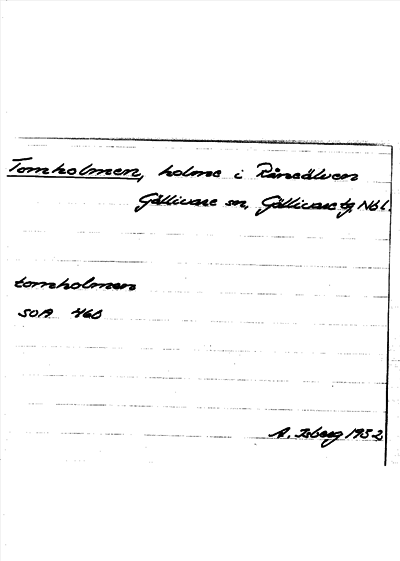 Tomholmen, holme i Råneälven
Gällivare sn, Gällivare tg, Nbl.
tomholmen
SOA 460
A. Isberg 1932